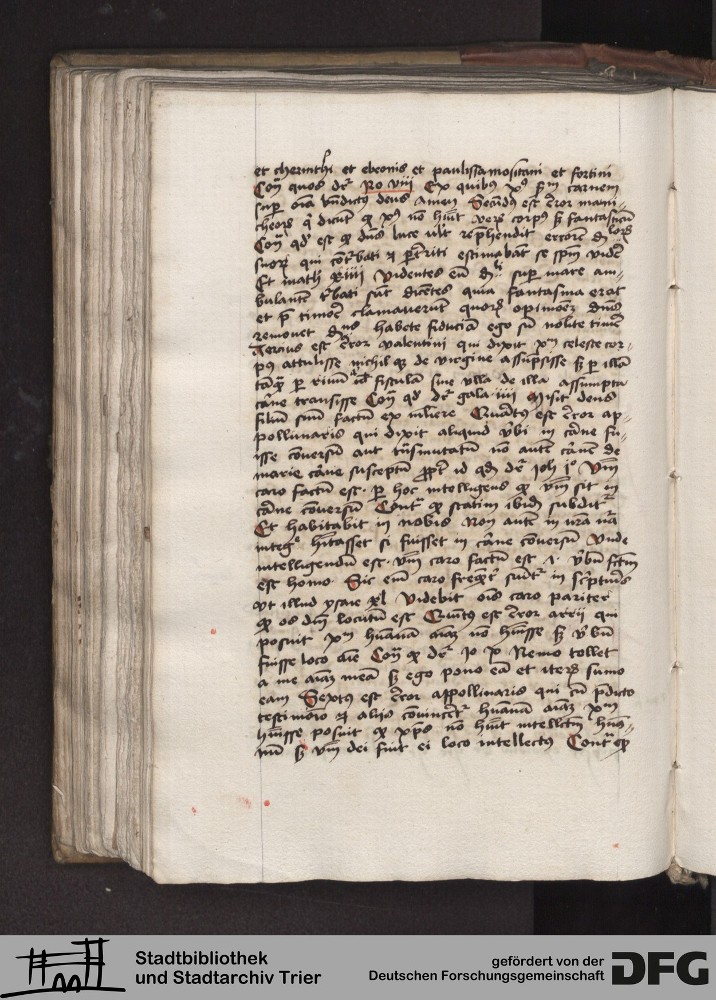 et cherinthi et ebeonis et paulissamositani et fortini
Co͞n quos dr̄ Ro viiij Ex quibus xp͞s s͞m carnem
sup om̄ia bn̄dictus deus amen Secu͞dus est error mani-
cheor̄ qi dicu͞t qp xp͞s no͞ hu͞it veru͞ corpus s; fantasticu͞
Co͞n qd est qp dn͞s luce ult rep̄hendit errore͞
suor̄ qui co͞t͞bati et p͞t͞riti estimaba͞t se sp͞m vide͞
Et math xiiij videntes eu͞ sup mare am-
bulante͞ t͞bati su͞t dice͞tes quia fantasma erat
et p͞ timore͞ clamaverunt quor̄ opinione͞ dn͞s
removet dice͞s habete fiducia͞ ego su͞ nolite time͞
Tercius est error valentini qui dixit xp͞m celeste cor-
pus attulisse nichil qp de virgine assu͞psisse s; p illa͞
ta͞q p rivu͞ fistula͞ sine ulla de illa assumpta
ca͞rne transisse Co͞n qd dr̄ gala iiij Misit deus
filiu͞ suu͞ factu͞ ex mliere Quartus est error ap-
pollinaris qui dixit aliquid v͞bi in ca͞rne fu-
isse co͞versu͞ aut tra͞smutatu͞ no͞ aute͞ ca͞rne͞ de
marie ca͞rne susceptu͞ p͞pt id qd dr̄ joh͞ jo v͞bu͞
caro factu͞ est p hoc intelligens qp v͞bu͞ sit in
ca͞rne co͞versu͞ Cont͞ qp statim ibide͞ subdit͞
Et habitabit in nobis Non aute͞ in nr͞a na͞
integre h͞itasset si fuisset in ca͞rne co͞versu͞ Unde
intelligendu͞ est v͞bu͞ caro factu͞ est i v͞bu͞ factu͞
est homo Sic eni͞ caro freque͞t͞ sumit͞ in sc͞pturis
ut illud ysaie xl Videbit ois caro pariter
qp os dn͞i locutu͞ est Quintus est error arrij qui
posuit xp͞m huma͞na͞ aia͞m no͞ h͞uisse s; v͞bu͞
fuisse loco aie Co͞n qp dr̄ Jo x Nemo tollet
a me aia͞m mea͞ s; ego pono ea͞ et iteru͞ sumo
eam Sextus est error appollinaris qui cu͞ p͞dicto
testimo͞io et alijs co͞vincer͞t͞ huma͞na͞ aia͞m xp͞m
h͞uisse posuit qp xp͞s no͞ hu͞it intellectu͞ huma-
nu͞ s; v͞bu͞ dei fuit ei loco intellectus Cont͞ qp
Stadtbibliothek
und Stadtarchiv Trier
gefördert von der
Deutschen Forschungsgemeinschaft
DFG